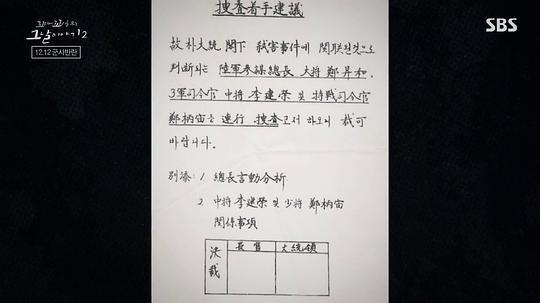 꼬리에 꼬리를 무는
그날 이야기 2
12.12군사반란
SBS
捜査着手建議
故 朴大統領 閣下 弑害事件에 関聯된것으로
判断되는 陸軍参謀總長 大将 鄭昇和,
3軍司令官 中将 李建榮 및 特戦司令官
鄭柄宙를 連行 捜査코저 하오니 裁可
바랍니다.
別添: 1 總長言動分析
2 中将 李建榮 및 少将 鄭柄宙
関係事項
決裁
長官
大統領